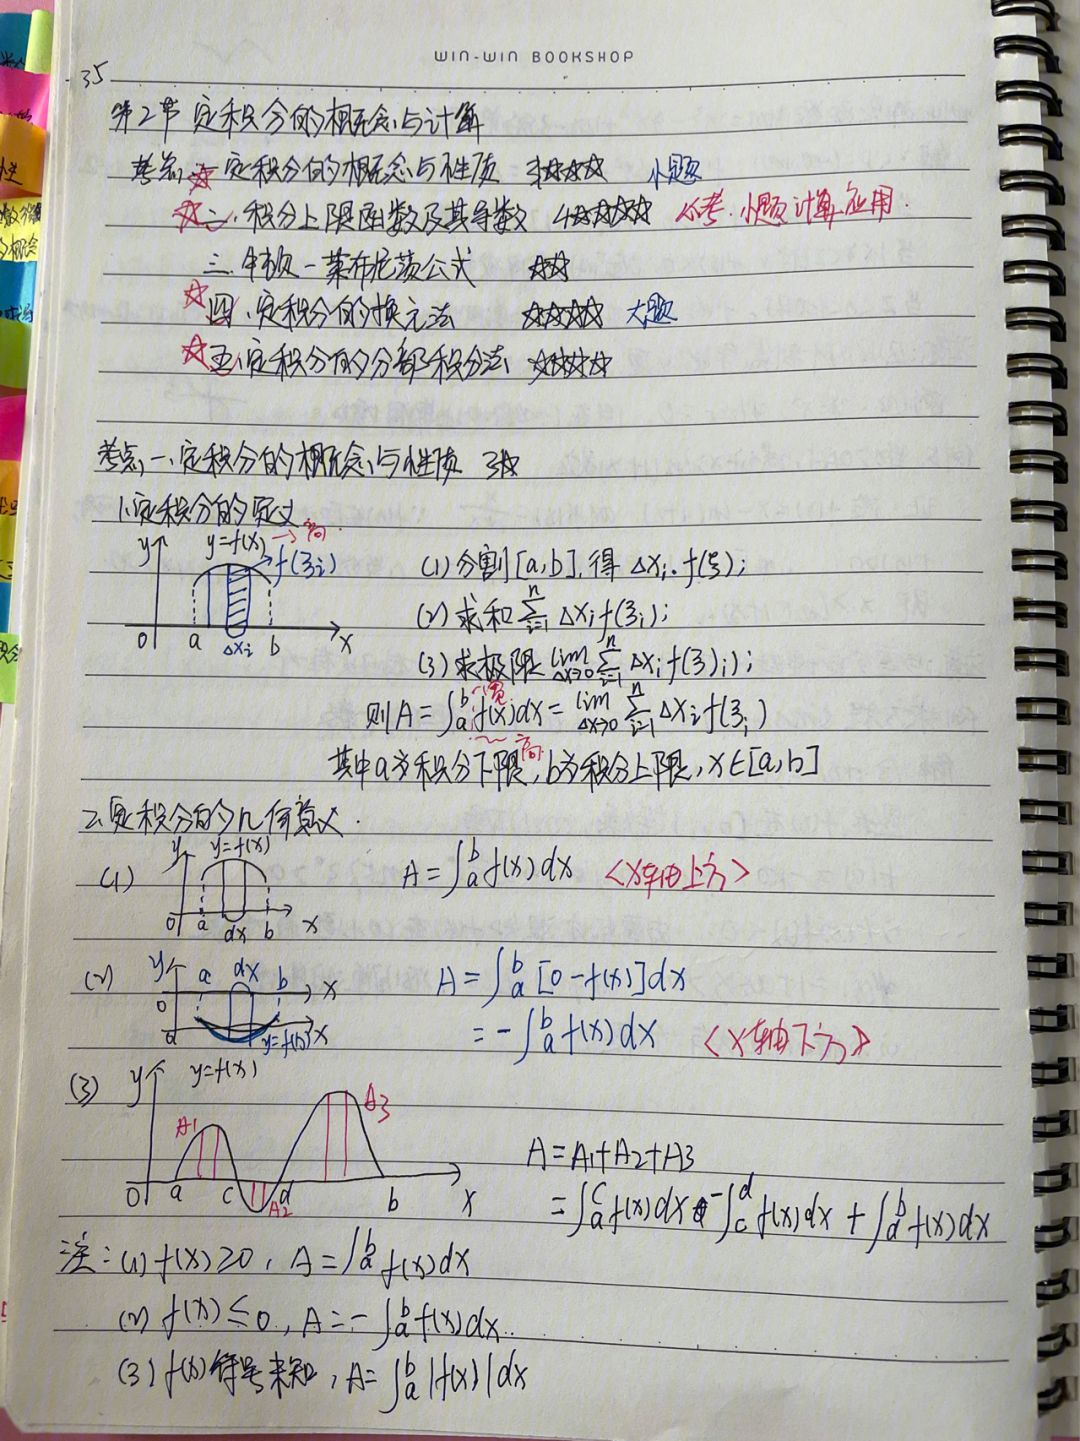 WIN-WIN BOOKSHOP
35
第2节 定积分的概念与计算
考点 ☆一定积分的概念与性质 3☆☆☆ 小题
☆二.积分上限函数及其导数 4☆☆☆☆ 必考.小题计算应用.
三.牛顿-莱布尼茨公式 ☆☆
☆四.定积分的换元法 ☆☆☆☆ 大题
☆五.定积分的分部积分法 ☆☆☆☆
考点一.定积分的概念与性质 3☆
1.定积分的定义
y y=f(x)→高 f(ξi)
0 a Δxi b x
(1)分割[a,b],得 Δxi·f(ξ);
(2)求和 ∑ⁿᵢ₌₁ Δxif(ξi);
(3)求极限 lim Δx→0 ∑ⁿᵢ₌₁ Δxif(ξ)i);
则A=∫ᵇₐ f(x)dx= lim Δx→0 ∑ⁿᵢ₌₁ Δxif(ξi)
宽 高
其中a为积分下限,b为积分上限,x∈[a,b]
2.定积分的几何意义.
(1) y y=f(x) 0 a dx b x A=∫ᵇₐ f(x)dx <x轴上方>
(2) y a dx b x 0 A=∫ᵇₐ [0-f(x)]dx
0 y=f(x) x =-∫ᵇₐ f(x)dx <x轴下方>
(3) y y=f(x)
A1 A3
0 a c A2 d b x
A=A1+A2+A3
=∫ᶜₐ f(x)dx -∫ᵈ꜀ f(x)dx + ∫ᵇd f(x)dx
注:(1)f(x)≥0, A=∫ᵇₐ f(x)dx
(2) f(x)≤0, A=-∫ᵇₐ f(x)dx.
(3)f(x)符号未知, A=∫ᵇₐ |f(x)|dx